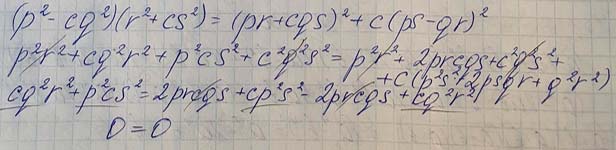 (p² - cq²)(r² + cs²) = (pr + cqs)² + c(ps - qr)²
p²r² + cq²r² + p²cs² + c²q²s² = p²r² + 2prcqs + c²q²s² +
+ c(p²s² - 2psqr + q²r²)
cq²r² + p²cs² = 2prcqs + cp²s² - 2prcqs + cq²r²
0 = 0